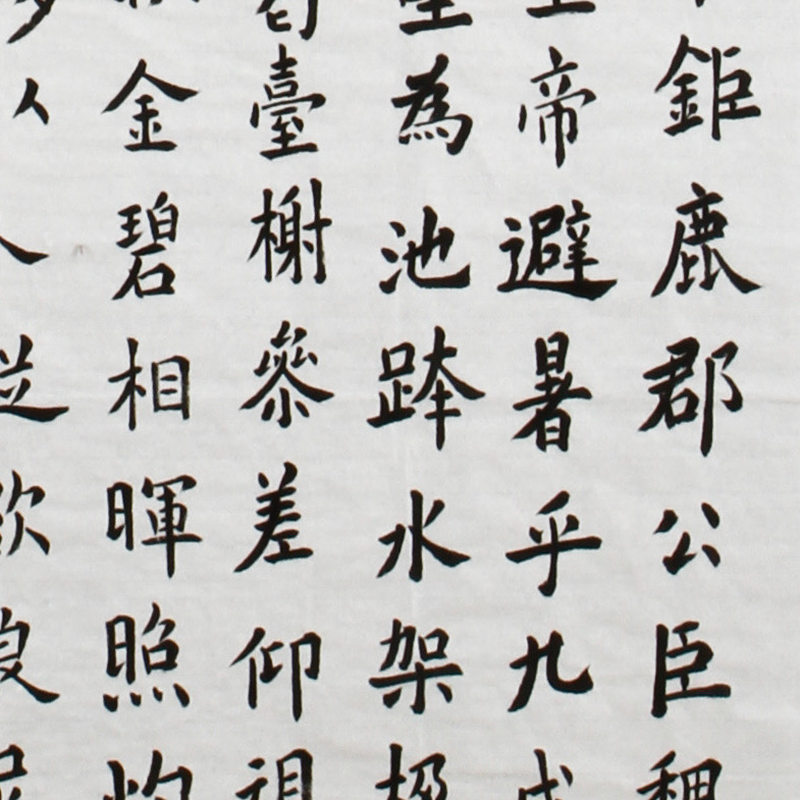 鉅鹿郡公臣
帝避暑乎九成
為池跨水架
臺榭參差仰視
金碧相暉照灼